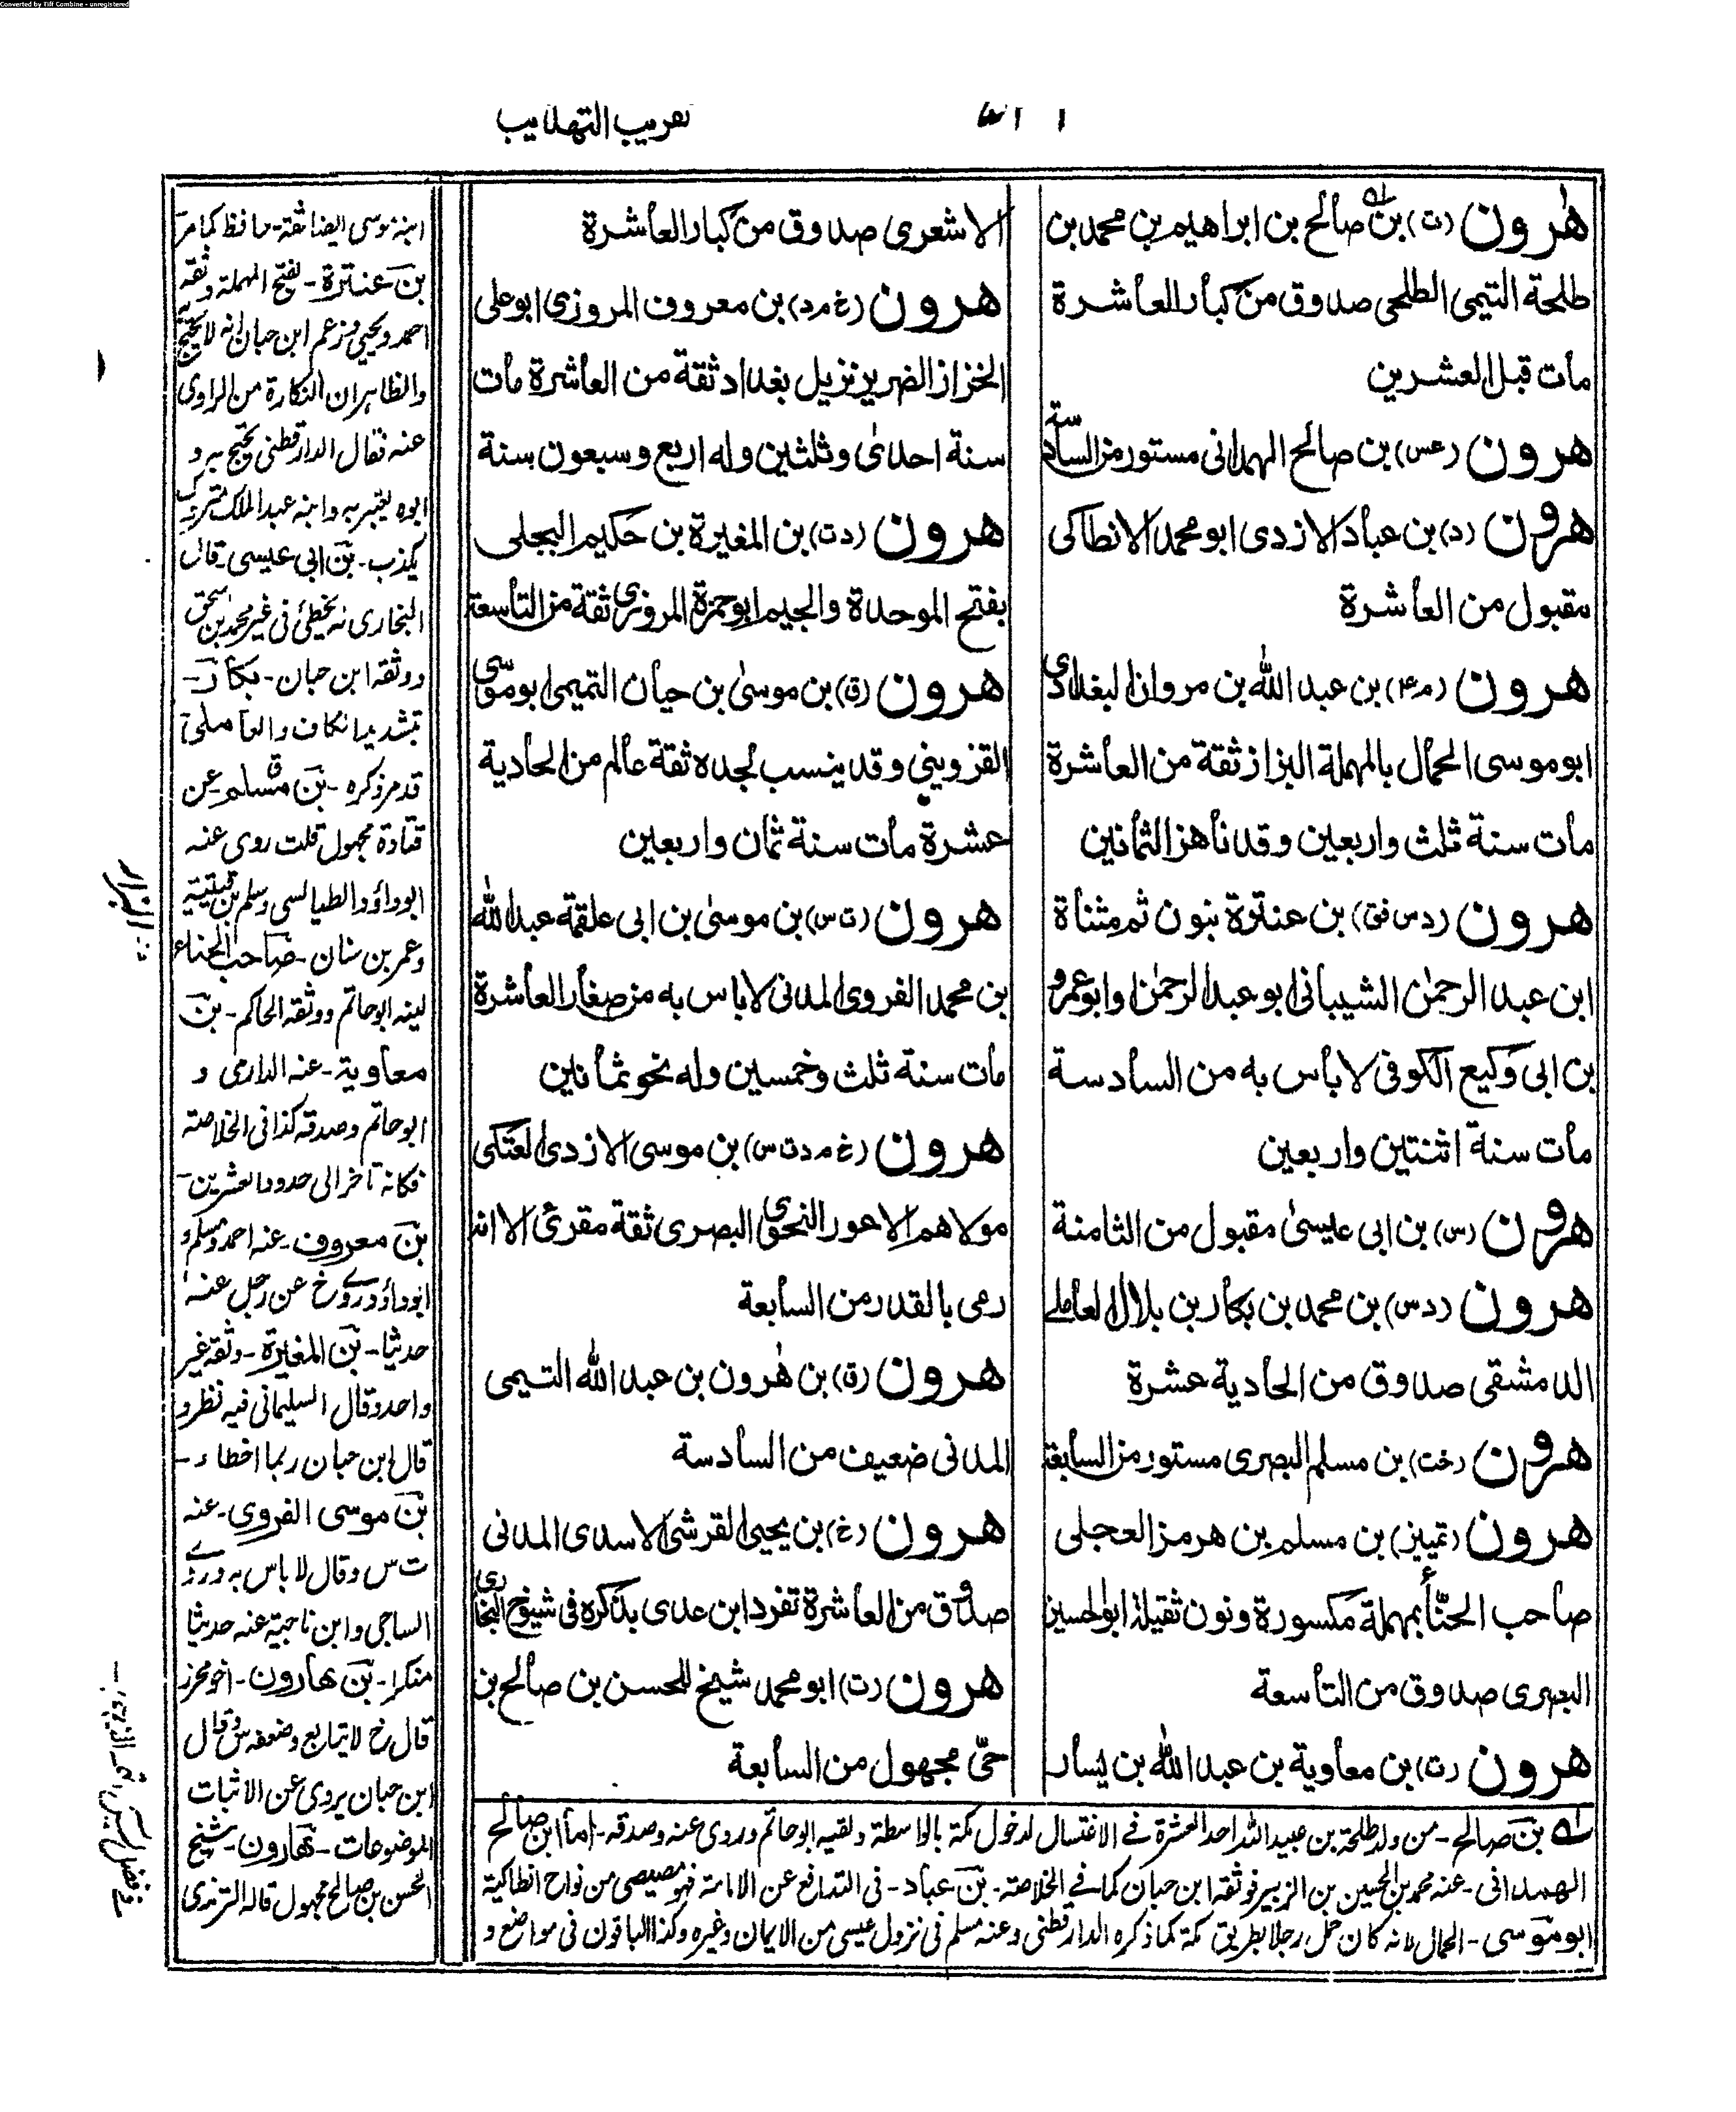 Converted by Tiff Combine - unregistered
تقريب التهذيب
هٰرون (ت) بن صالح بن ابراهيم بن محمد بن
طلحة التيمى الطلحى صدوق من كبار العاشرة
مات قبل العشرين
هرون (عس) بن صالح الهمدانى مستور من السادسة
هرون (د) بن عباد الازدى ابو محمد الانطاكى
مقبول من العاشرة
هرون (م۴) بن عبد الله بن مروان البغدادى
ابو موسى الحمال بالمهملة البزاز ثقة من العاشرة
مات سنة ثلث واربعين وقد ناهز الثمانين
هرون (دس فق) بن عنترة بنون ثم مثناة
ابن عبد الرحمٰن الشيبانى ابو عبد الرحمٰن وابو عمرو
بن ابى وكيع الكوفى لا بأس به من السادسة
مات سنة اثنتين واربعين
هرون (س) بن ابى عيسىٰ مقبول من الثامنة
هرون (دس) بن محمد بن بكار بن بلال العاملى
الدمشقى صدوق من الحادية عشرة
هرون (خت) بن مسلم البصرى مستور من السابعة
هرون (تمييز) بن مسلم بن هرمز العجلى
صاحب الحنّاء بمهملة مكسورة ونون ثقيلة ابو الحسين
البصرى صدوق من التاسعة
هرون (ت) بن معاوية بن عبد الله بن يسار
الاشعرى صدوق من كبار العاشرة
هرون (خ م د) بن معروف المروزى ابو على
الخزاز الضرير نزيل بغداد ثقة من العاشرة مات
سنة احدىٰ وثلثين وله اربع وسبعون سنة
هرون (دت) بن المغيرة بن حكيم البجلى
بفتح الموحدة والجيم ابو حمزة المروزى ثقة من التاسعة
هرون (ق) بن موسىٰ بن حيان التميمى ابو موسى
القزوينى وقد ينسب لجده ثقة عالم من الحادية
عشرة مات سنة ثمان واربعين
هرون (ت س) بن موسىٰ بن ابى علقمة عبد الله
بن محمد الفروى المدنى لا باس به من صغار العاشرة
مات سنة ثلث وخمسين وله نحو ثمانين
هرون (خ م دت س) بن موسى الازدى العتكى
مولاهم الاعور النحوى البصرى ثقة مقرئ الا انه
رمى بالقدر من السابعة
هرون (ق) بن هٰرون بن عبد الله التيمى
المدنى ضعيف من السادسة
هرون (خ) بن يحيى القرشى الاسدى المدنى
صدوق من العاشرة تفرد ابن عدى بذكره فى شيوخ البخارى
هرون (ت) ابو محمد شيخ للحسن بن صالح بن
حىّ مجهول من السابعة
بن صالح - من ولد طلحة بن عبيد الله احد العشرة فى الاغتسال لدخول مكة بالواسطة ولقيه ابو حاتم وروى عنه وصدقه - اما ابن صالح
الهمدانى - عنه محمد بن الحسين بن الزبير فوثقه ابن حبان كما فى الخلاصة - بن عباد - فى التدافع عن الامامة فهو مصيصى من نواح انطاكية
ابو موسى - الحمال لانه كان حمل رجلا بطريق مكة كما ذكره الدارقطنى وعنه مسلم فى نزول عيسى من الايمان وغيره وكذا الباقون فى مواضع و
ابنه موسى ايضا ثقة - حافظ كما مر
بن عنترة - بفتح المهملة وثقه
احمد ويحيى وزعم ابن حبان انه لا يحتج به
والظاهر ان النكارة من الراوى
عنه فقال الدارقطنى يحتج به و
ابوه يعتبر به وابنه عبد الملك متروك
يكذب - بن ابى عيسى - قال
البخارى يخطئ فى غير محمد بن اسحق
ووثقه ابن حبان - بكار -
بتشديد الكاف والعاملى
قد مر ذكره - بن مسلم - عن
قتادة مجهول قلت روى عنه
ابو داؤد الطيالسى وسلم بن قتيبة
وعمر بن سنان - صاحب الحناء
لينه ابو حاتم ووثقه الحاكم - بن
معاوية - عنه الدارمى و
ابو حاتم وصدقه كذا فى الخلاصة
فكانه تاخر الى حدود العشرين -
بن معروف - عنه احمد ومسلم و
ابو داؤد وروى خ عن رجل عنه
حديثا - بن المغيرة - وثقه غير
واحد وقال السليمانى فيه نظر و
قال ابن حبان ربما اخطاء -
بن موسى الفروى - عنه
ت س وقال لا باس به وروى
الساجى وابن ناجية عنه حديثا
منكرا - بن هارون - اخو محرز
قال خ لا يتابع وضعفه س وقال
ابن حبان يروى عن الاثبات
الموضوعات - هارون - شيخ
الحسن بن صالح مجهول قاله الترمذى